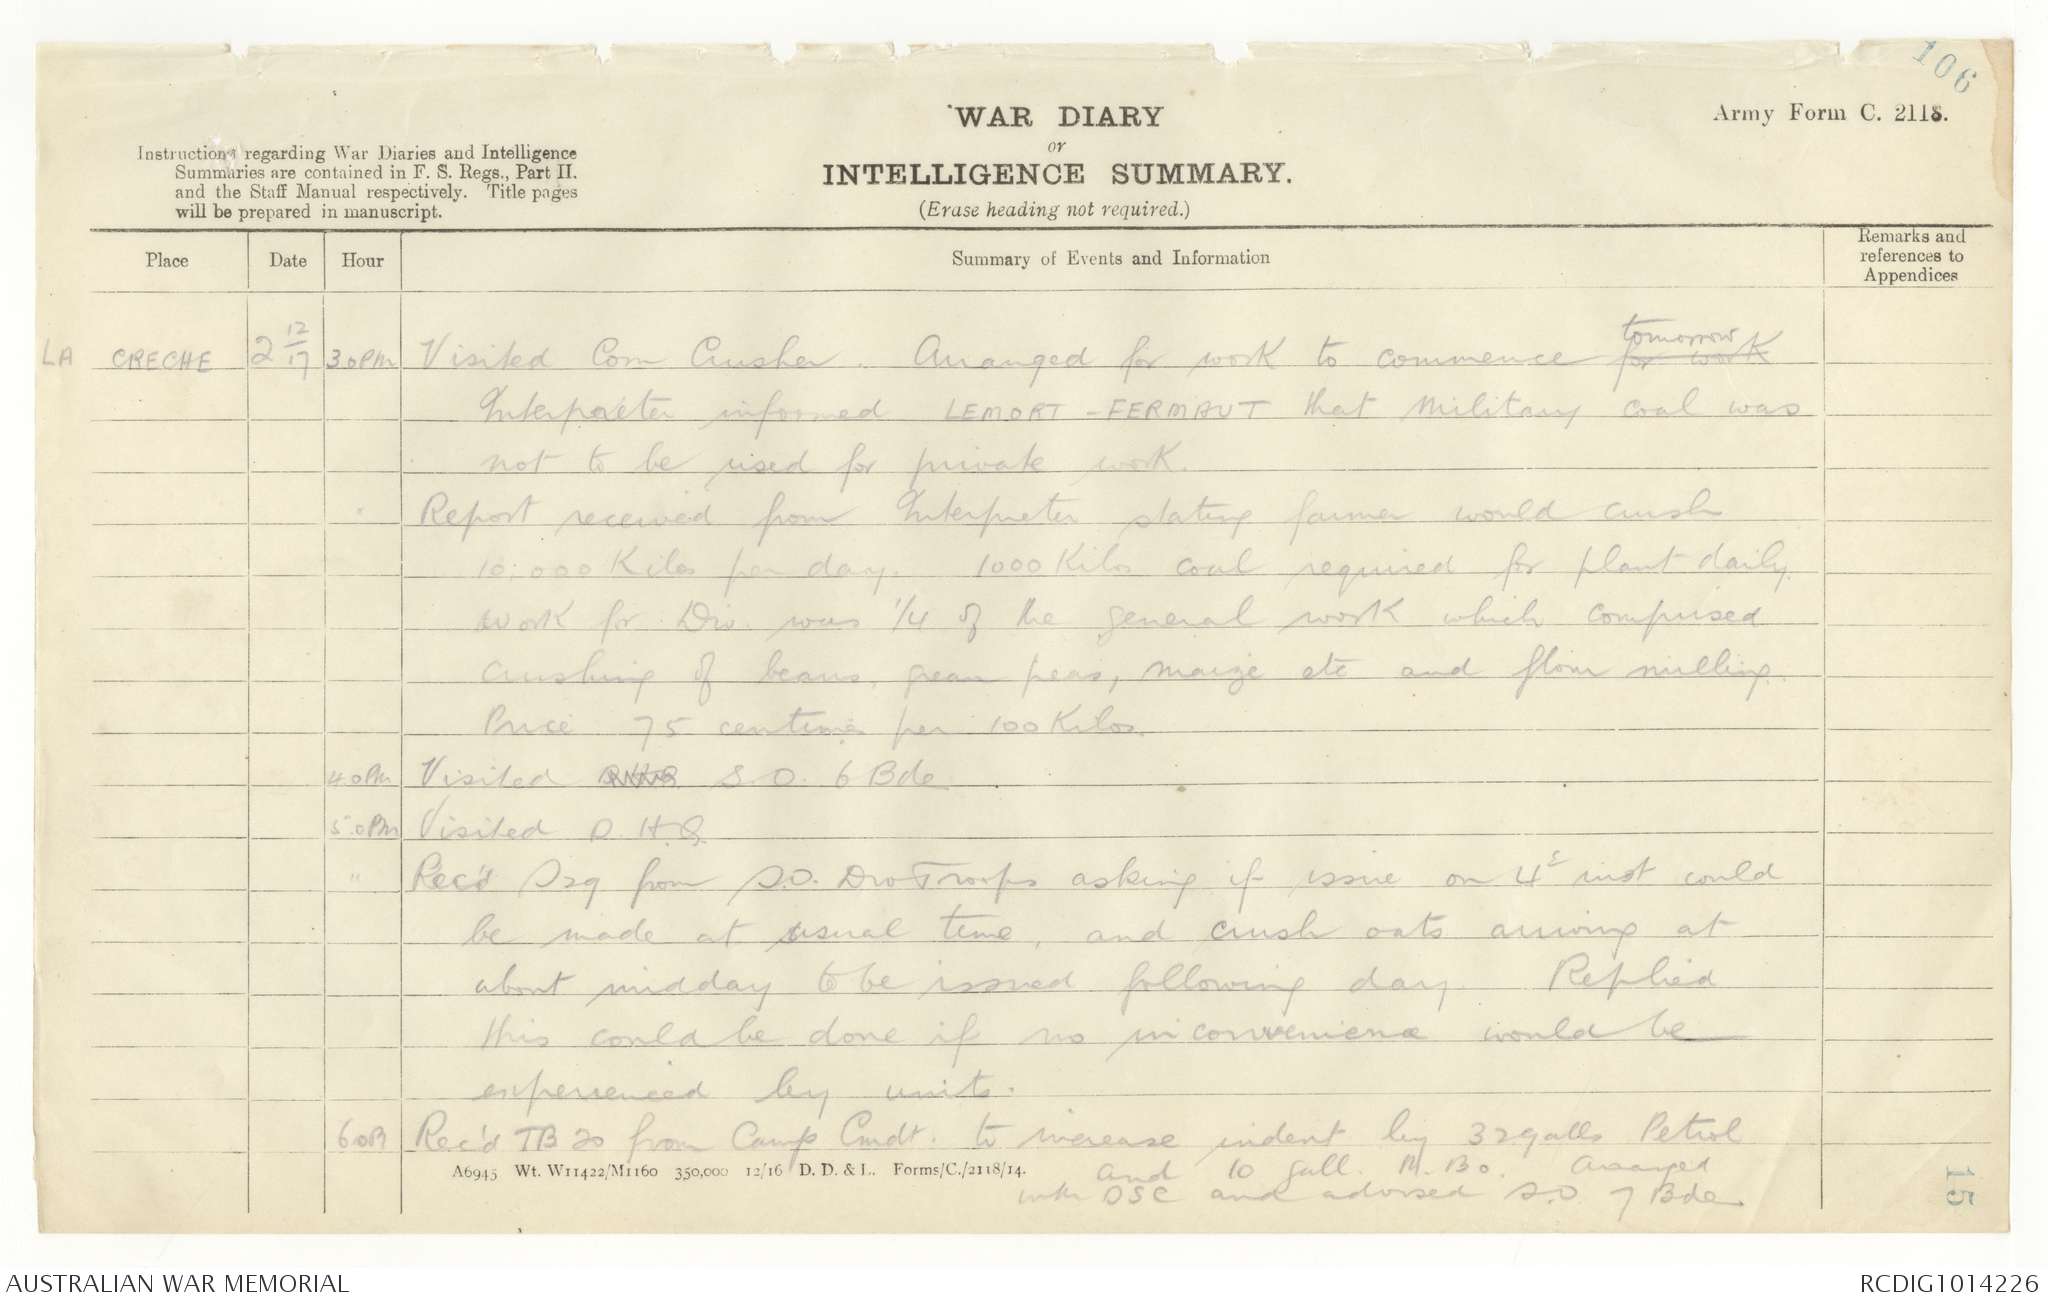 106
WAR DIARY
or
INTELLIGENCE SUMMARY.
(Erase heading not required.)
Army Form C. 2118.
Instructions regarding War Diaries and Intelligence
Summaries are contained in F. S. Regs., Part II.
and the Staff Manual respectively. Title pages
will be prepared in manuscript.
Place Date Hour Summary of Events and Information Remarks and references to Appendices
LA CRECHE 2 12/17 3 0 PM Visited Corn Crusher. Arranged for work to commence for work tomorrow
Interpreter informed LEMORT-FERMAUT that Military coal was
not to be used for private work.
" Report received from Interpreter stating farmer would crush
10,000 Kilos per day. 1000 Kilos coal required for plant daily.
Work for Div. was 1/4 of the general work which comprised
crushing of beans, green peas, maize etc and flour milling.
Price 75 centimes per 100 Kilos.
4.0PM Visited S.O. 6 Bde
5.0PM Visited D.H.Q.
" Rec'd S29 from S.O. Div Troops asking if issue on 4th inst could
be made at usual time, and crush oats arriving at
about midday to be issued following day. Replied
this could be done if no inconvenience would be
experienced by units.
6 0 Rec'd TB 20 from Camp Cmdt. to increase indent by 32 galls Petrol
and 10 gall. M. Bo. Arranged
with DSC and advised S.O. 7 Bde
A6945 Wt. W11422/M1160 350,000 12/16 D. D. & L. Forms/C./2118/14.
15
AUSTRALIAN WAR MEMORIAL
RCDIG1014226